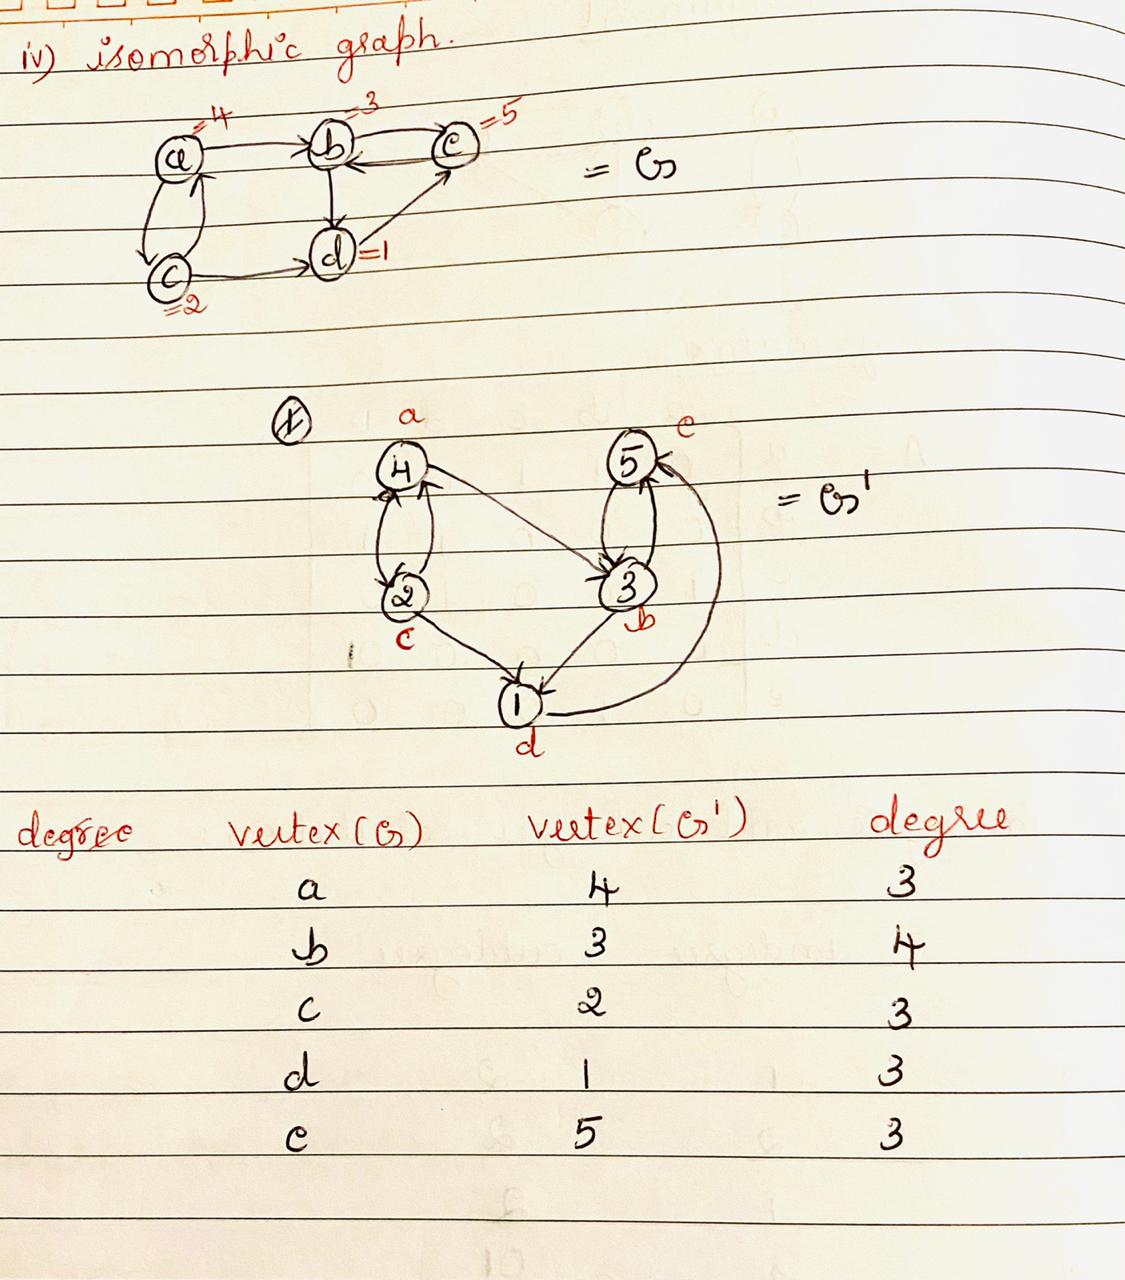 iv) isomorphic graph.
=4 =3 =5
a b e = G
d =1
c
=2
a e
4 5 = G'
2 3
c b
1
d
degree vertex (G) vertex (G') degree
a 4 3
b 3 4
c 2 3
d 1 3
e 5 3